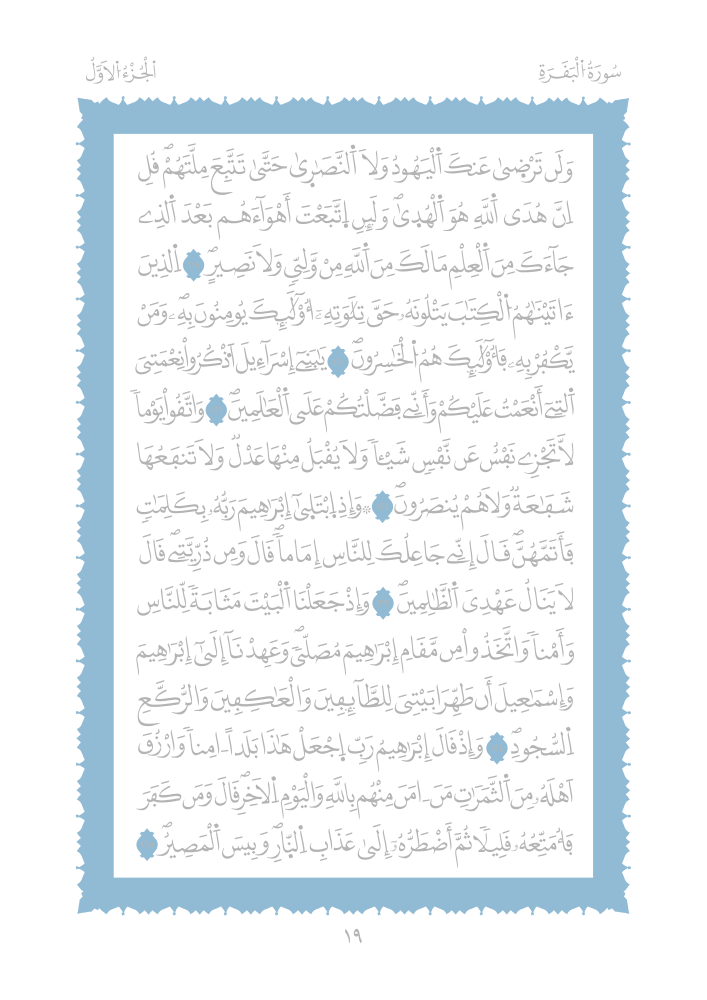 سُورَةُ اُ۬لْبَقَرَةِ
اُ۬لْجُزْءُ اُ۬لَاوَّلُ
وَلَن تَرْض۪يٰ عَنكَ اَ۬لْيَهُودُ وَلَا اَ۬لنَّصَٰر۪يٰ حَتَّيٰ تَتَّبِعَ مِلَّتَهُمْۖ قُلِ
اِنَّ هُدَى اَ۬للَّهِ هُوَ اَ۬لْهُد۪يٰۖ وَلَئِنِ اِ۪تَّبَعْتَ أَهْوَآءَهُم بَعْدَ اَ۬لذِے
جَآءَكَ مِنَ اَ۬لْعِلْمِ مَا لَكَ مِنَ اَ۬للَّهِ مِنْ وَّلِيّٖ وَلَا نَصِيرٍۖ اِ۬لذِينَ
ءَاتَيْنَٰهُمُ اُ۬لْكِتَٰبَ يَتْلُونَهُۥ حَقَّ تِلَٰوَتِهِۦٓ أُوْلَٰٓئِكَ يُومِنُونَ بِهِۦۖ وَمَنْ
يَّكْفُرْ بِهِۦ فَأُوْلَٰٓئِكَ هُمُ اُ۬لْخَٰسِرُونَۖ يَٰبَنِےٓ إِسْرَآءِيلَ اَ۟ذْكُرُواْ نِعْمَتِيَ
اَ۬لتِےٓ أَنْعَمْتُ عَلَيْكُمْ وَأَنِّے فَضَّلْتُكُمْ عَلَى اَ۬لْعَٰلَمِينَۖ وَاتَّقُواْ يَوْماٗ
لَّا تَجْزِے نَفْسٌ عَن نَّفْسٖ شَيْـٔاٗ وَلَا يُقْبَلُ مِنْهَا عَدْلٞ وَلَا تَنفَعُهَا
شَفَٰعَةٞ وَلَا هُمْ يُنصَرُونَۖ ۞وَإِذِ اِ۪بْتَل۪يٰٓ إِبْرَٰهِيمَ رَبُّهُۥ بِكَلِمَٰتٖ
فَأَتَمَّهُنَّۖ قَالَ إِنِّے جَاعِلُكَ لِلنَّاسِ إِمَاماٗۖ قَالَ وَمِن ذُرِّيَّتِےۖ قَالَ
لَا يَنَالُ عَهْدِيَ اَ۬لظَّٰلِمِينَۖ وَإِذْ جَعَلْنَا اَ۬لْبَيْتَ مَثَابَةٗ لِّلنَّاسِ
وَأَمْناٗ وَاتَّخَذُواْ مِن مَّقَامِ إِبْرَٰهِيمَ مُصَلّيٗۖ وَعَهِدْنَآ إِلَيٰٓ إِبْرَٰهِيمَ
وَإِسْمَٰعِيلَ أَن طَهِّرَا بَيْتِيَ لِلطَّآئِفِينَ وَالْعَٰكِفِينَ وَالرُّكَّعِ
اِ۬لسُّجُودِۖ وَإِذْ قَالَ إِبْرَٰهِيمُ رَبِّ اِ۪جْعَلْ هَٰذَا بَلَداً اٰمِناٗ وَارْزُقَ
اَهْلَهُۥ مِنَ اَ۬لثَّمَرَٰتِ مَنَ اٰمَنَ مِنْهُم بِاللَّهِ وَالْيَوْمِ اِ۬لَاخِرِۖ قَالَ وَمَن كَفَرَ
فَأُمَتِّعُهُۥ قَلِيلاٗ ثُمَّ أَضْطَرُّهُۥٓ إِلَيٰ عَذَابِ اِ۬لنّ۪ارِۖ وَبِيسَ اَ۬لْمَصِيرُۖ
١٩